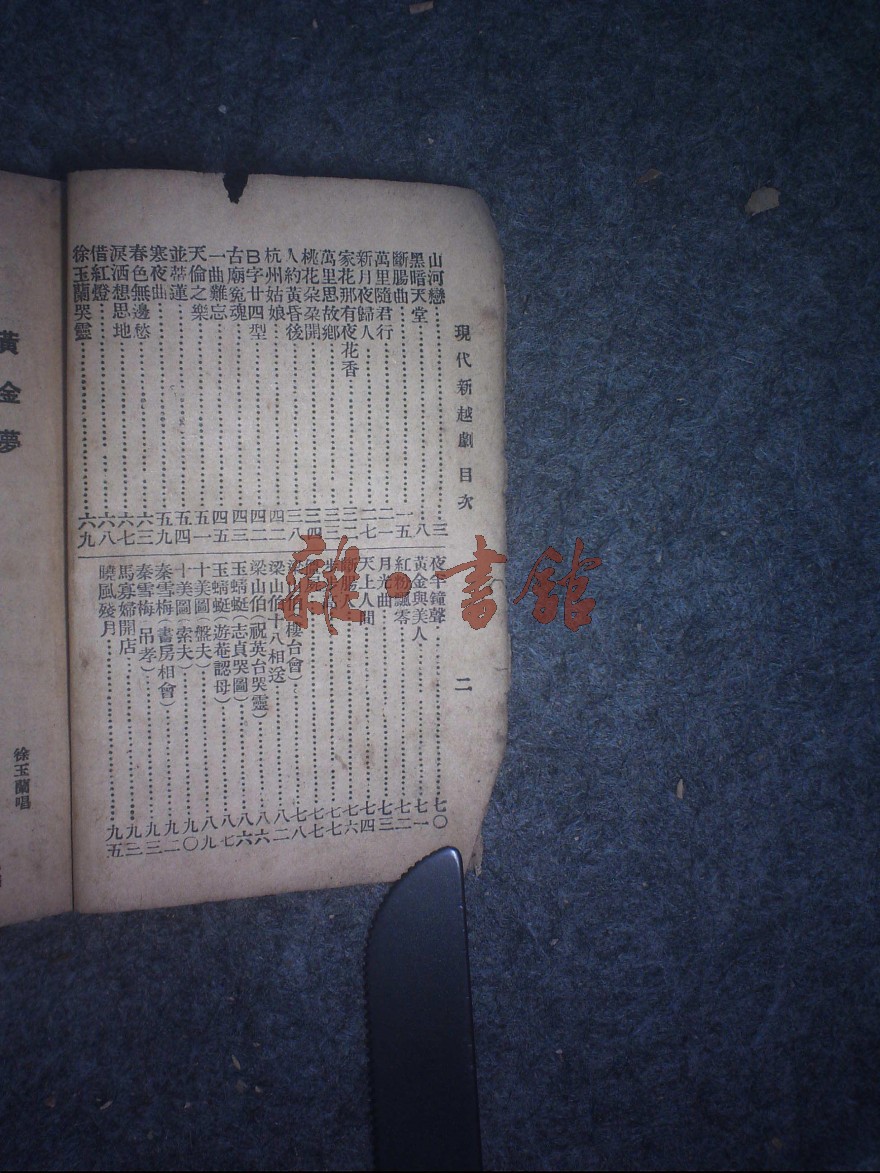 現代新越劇 目次 二
山河戀 三
黑暗天堂 八
斷腸曲 一五
萬里隨君行 二一
新月夜歸人 二七
家花那有夜花香 三二
萬里思故鄉 三三
桃花朵朵開 三四
人約黃昏後 三八
杭州姑娘 四二
B字廿四型 四二
古廟冤魂 四三
一曲難忘 四五
天倫之樂 五一
並蒂蓮 五四
寒夜曲 五九
春色無邊愁 六三
淚洒想思地 六七
借紅燈 六八
徐玉蘭哭靈 六九
夜半鐘聲 七〇
黃金與美人 七一
紅粉飄零 七二
月光曲 七三
天上人間 七四
七六
七七
七七
樓台會) 七八
梁山伯十八相送 八二
梁山伯(祝英台哭靈) 八六
玉蜻蜓(志貞哭圖) 八六
玉蜻蜓(遊菴認母) 八七
十美圖(盤夫) 八九
十美圖(索夫) 九〇
秦雪梅(書房相會) 九二
秦雪梅(吊孝) 九三
馬寡婦開店
曉風殘月 九五
黃金夢
徐玉蘭唱
雜·書館